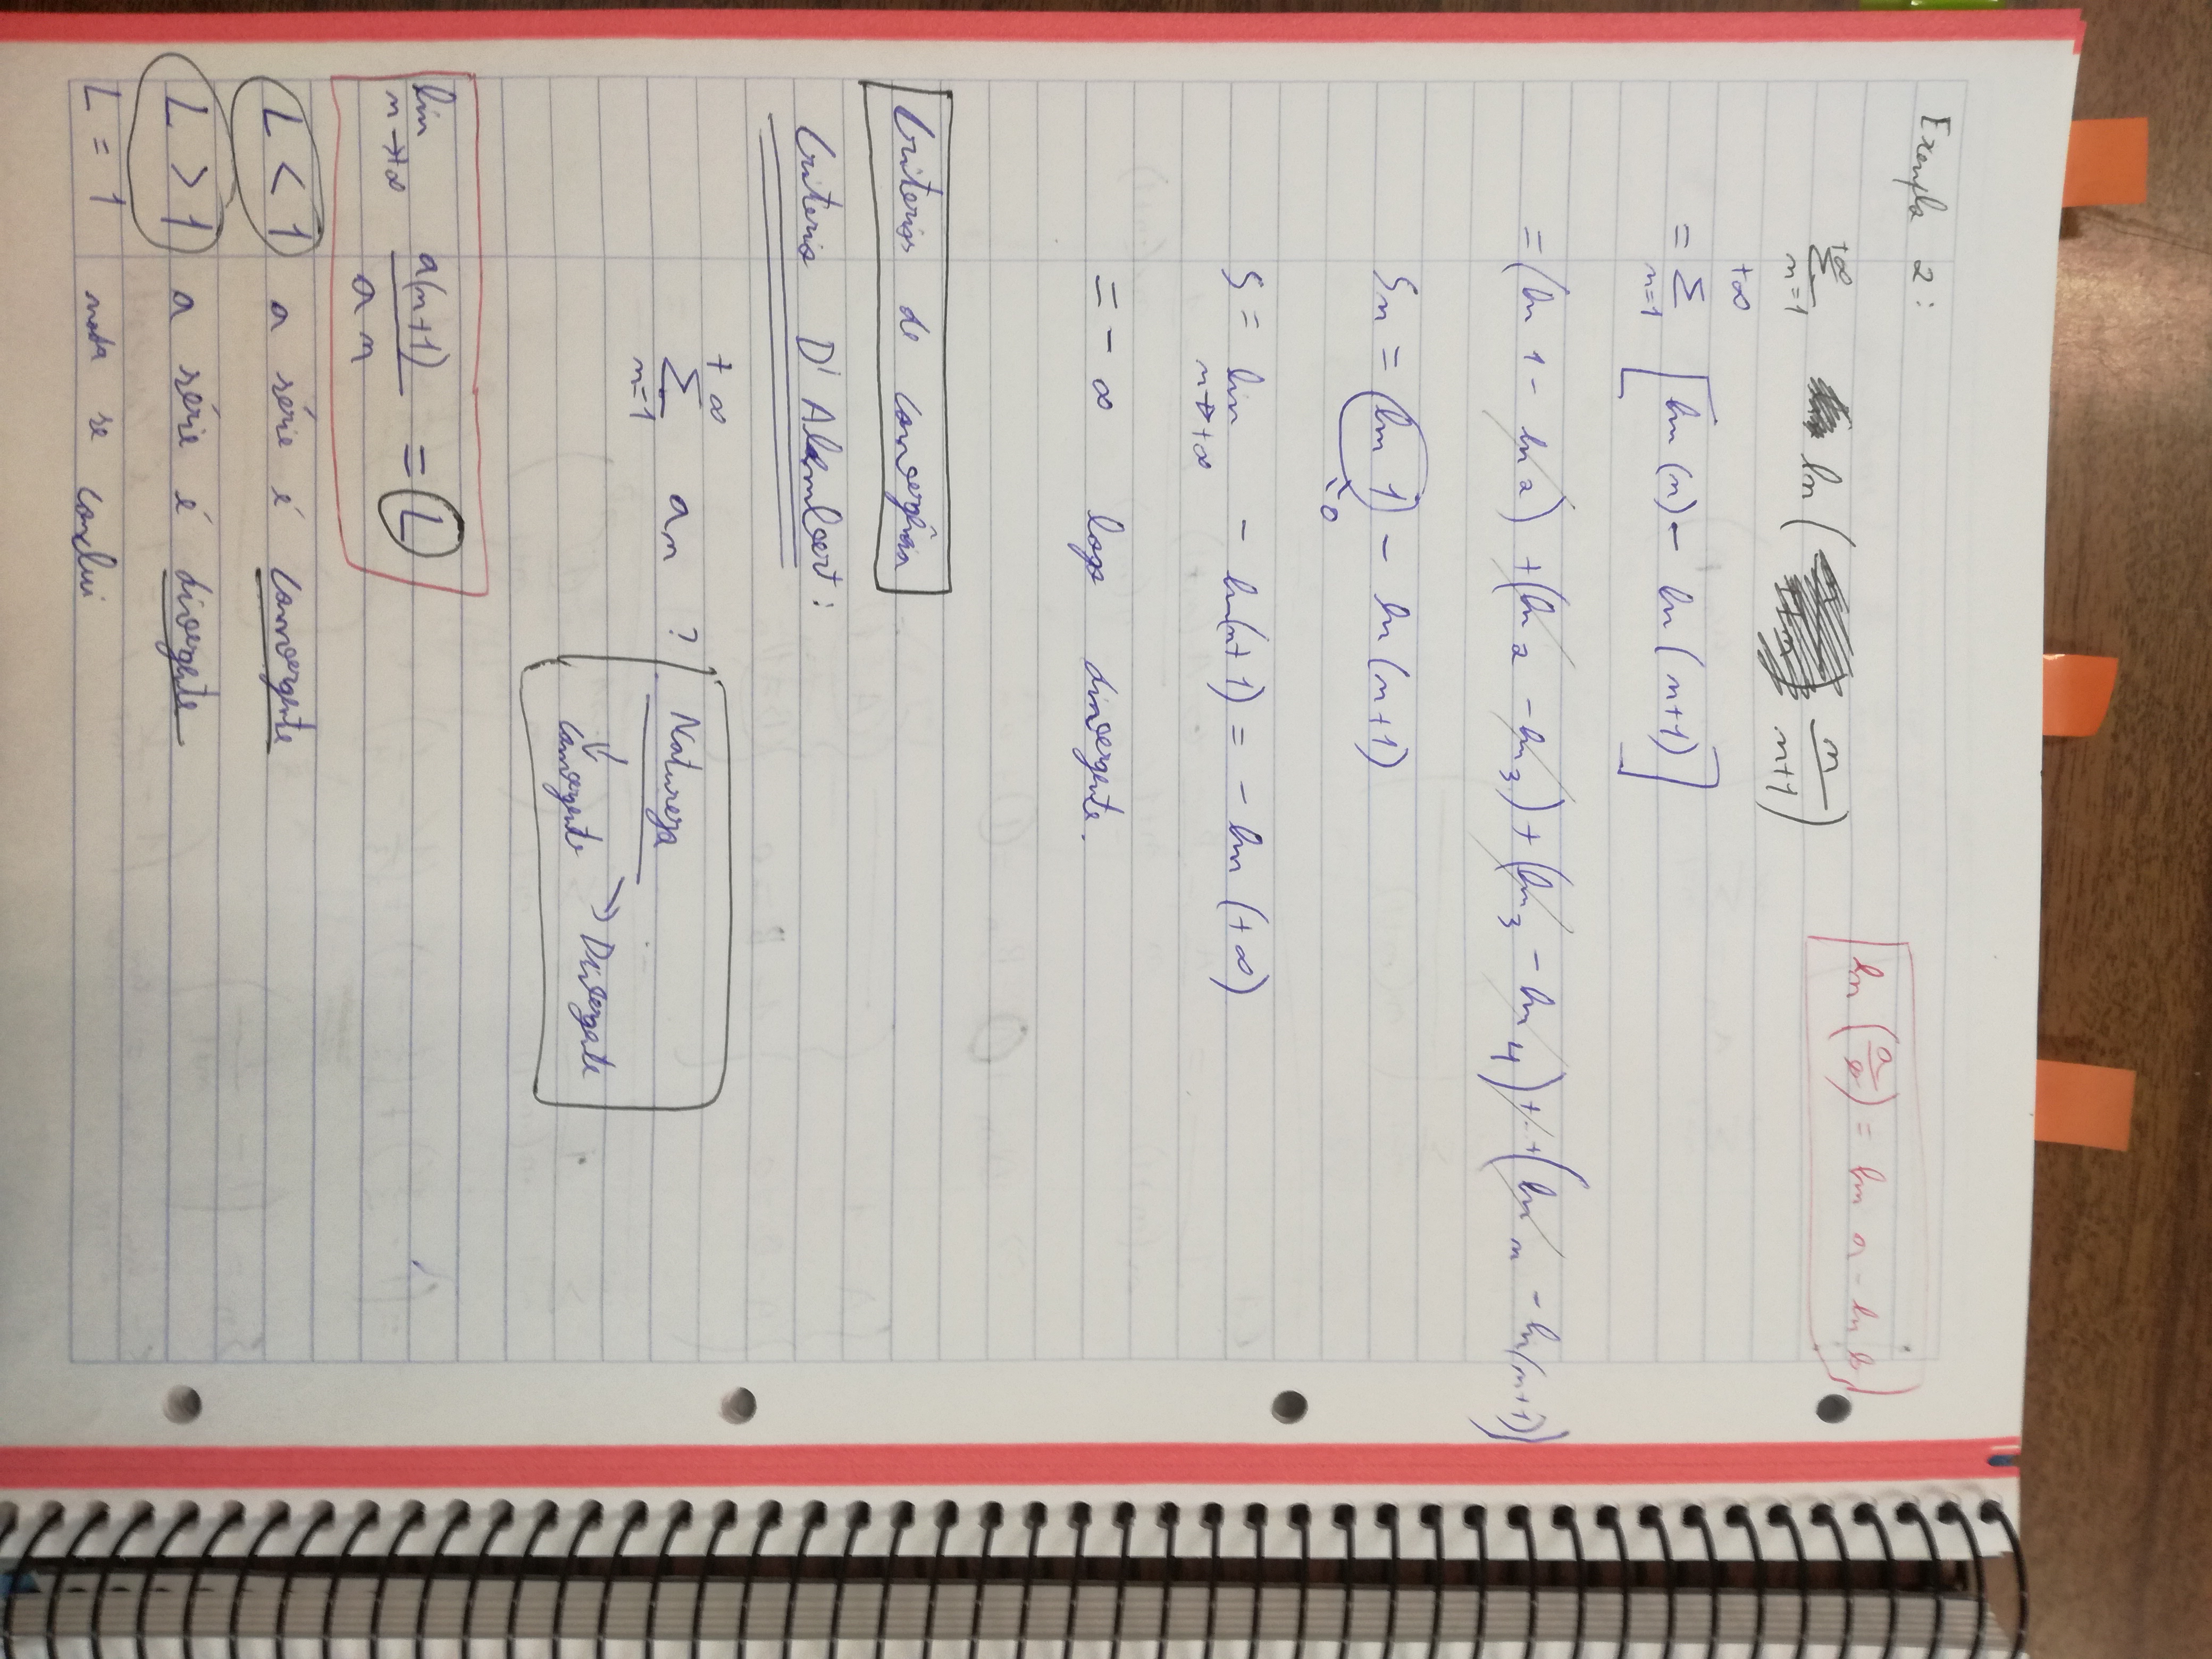 Exemplo 2:
ln (a/b) = ln a - ln b
+∞ Σ n=1 ln ( n/n+1 )
= +∞ Σ n=1 [ ln (n) - ln (n+1) ]
= (ln 1 - ln 2) + (ln 2 - ln 3) + (ln 3 - ln 4) + ... + (ln n - ln(n+1))
Sn = (ln 1) - ln (n+1)
= 0
S = lim n→+∞ - ln(n+1) = - ln (+∞)
= - ∞ logo divergente.
Criterios de convergência
Criterio D'Alembert:
+∞ Σ n=1 an ?
Natureza
convergente → Divergente
lim n→+∞ a(n+1)/an = L
L < 1 a série é convergente
L > 1 a série é divergente
L = 1 nada se conclui